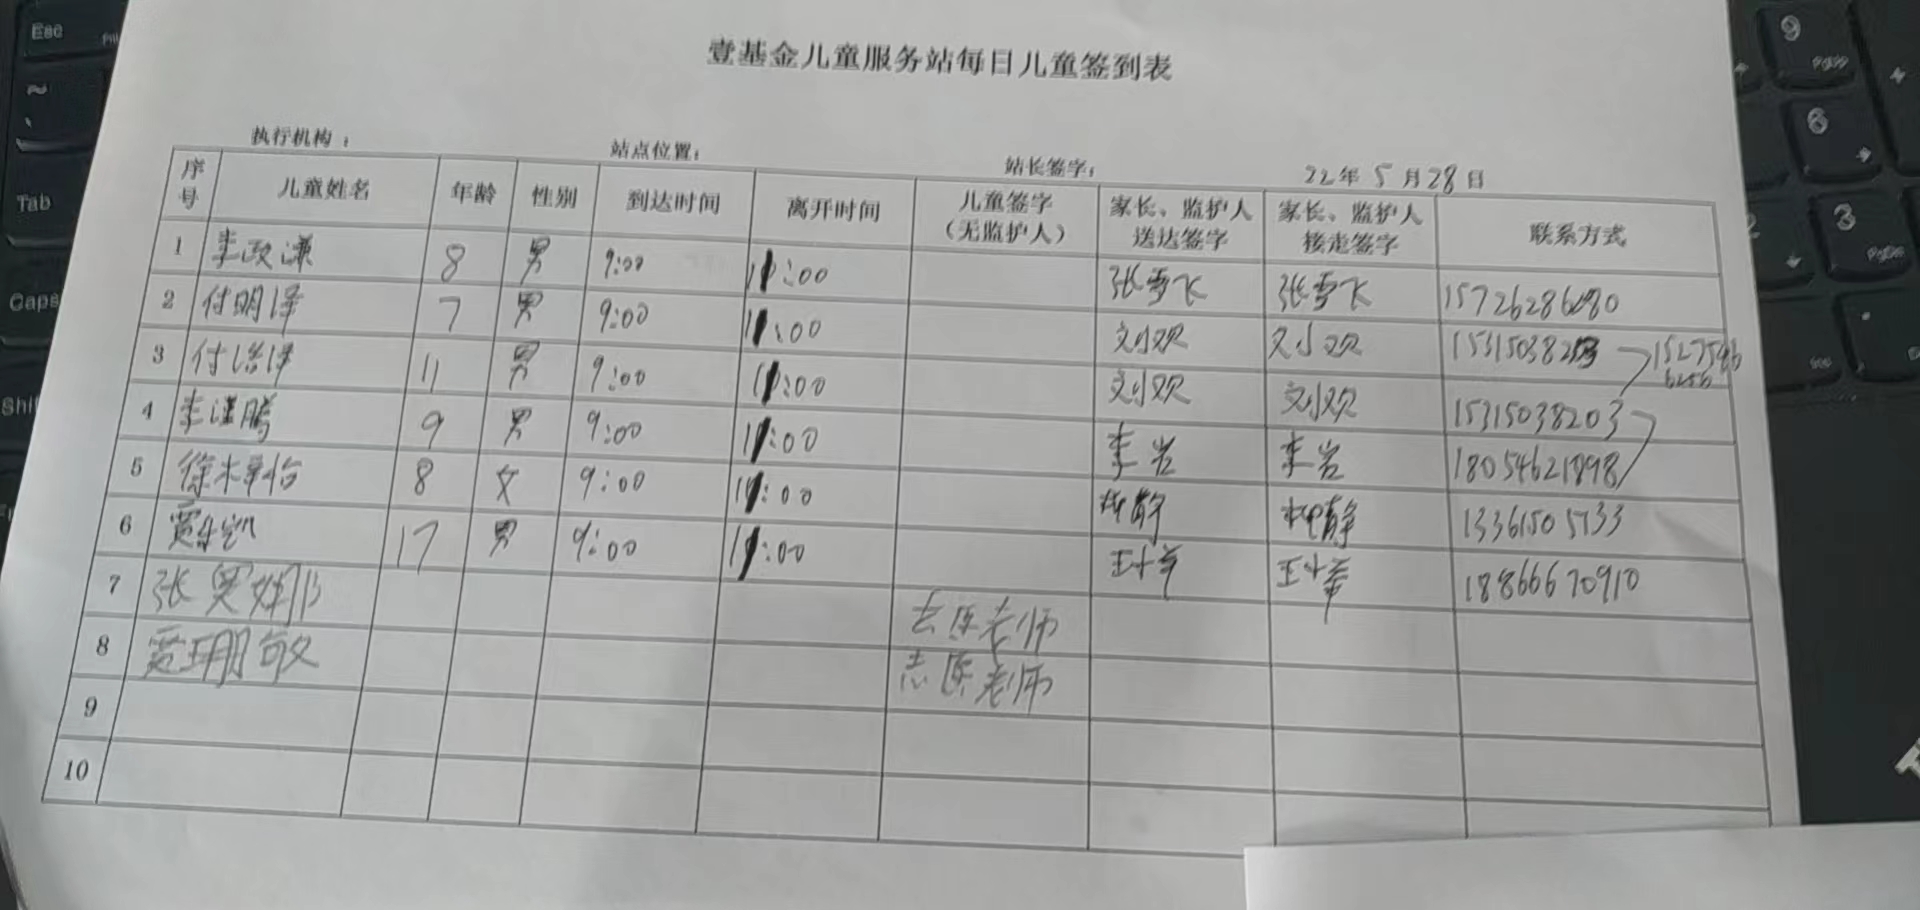 壹基金儿童服务站每日儿童签到表
执行机构： 站点位置： 站长签字： 22年5月28日
序号 儿童姓名 年龄 性别 到达时间 离开时间 儿童签字（无监护人） 家长、监护人送达签字 家长、监护人接走签字 联系方式
1 李政谦 8 男 9:00 11:00 张雪飞 张雪飞
2 付明泽 7 男 9:00 11:00 刘欢 刘欢
3 付浩泽 11 男 9:00 11:00 刘欢 刘欢 15315038203
4 李 腾 9 男 9:00 11:00 李岩 李岩 18054621898
5 徐 怡 8 女 9:00 11:00 柳静 柳静 13361505733
6 贾 凯 17 男 9:00 11:00 王 王 18866670910
7 张 老师
8 贾 老师
9
10